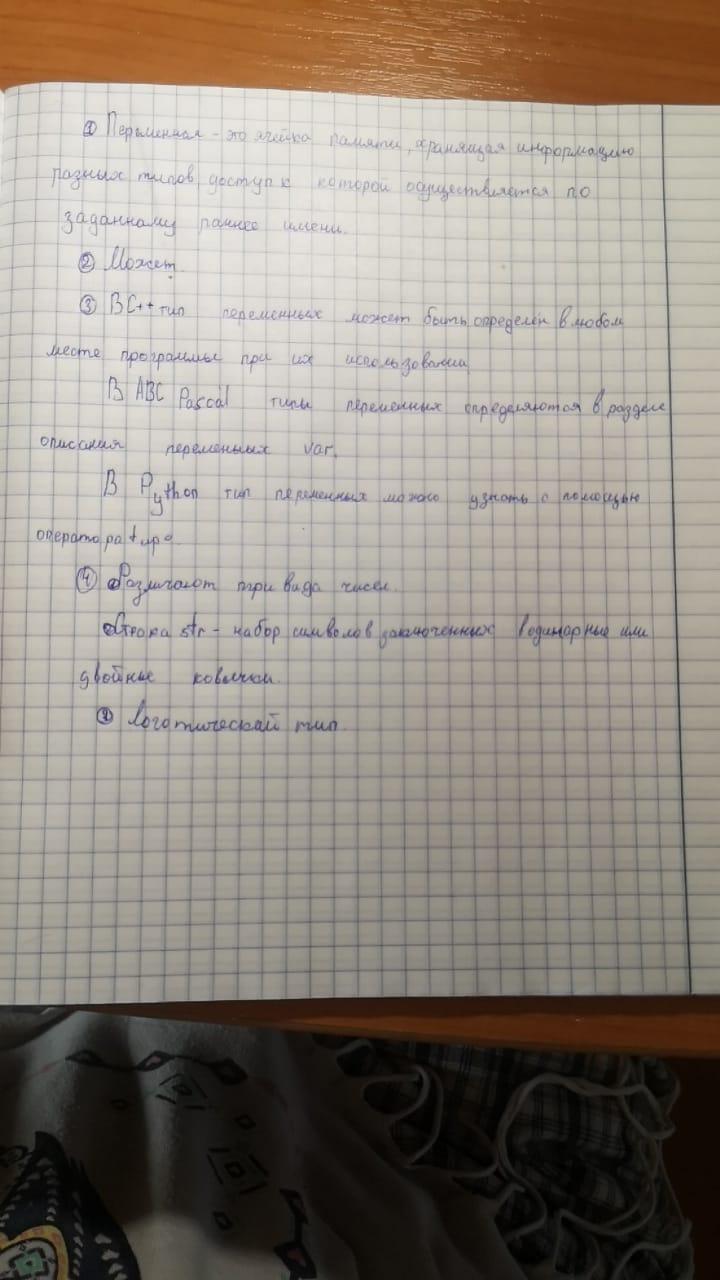 ① Переменная - это ячейка памяти, хранящая информацию
разных типов, доступ к которой осуществляется по
заданному раннее имени.
② Может.
③ В С++ тип переменных может быть определён в любом
месте программы при их использовании
В ABC Pascal типы переменных определяются в разделе
описания переменных var.
В Python тип переменных можно узнать с помощью
оператора type.
④ Различают три вида чисел.
Строка str - набор символов заключенных в одинарные или
двойные ковычки.
Логотический тип